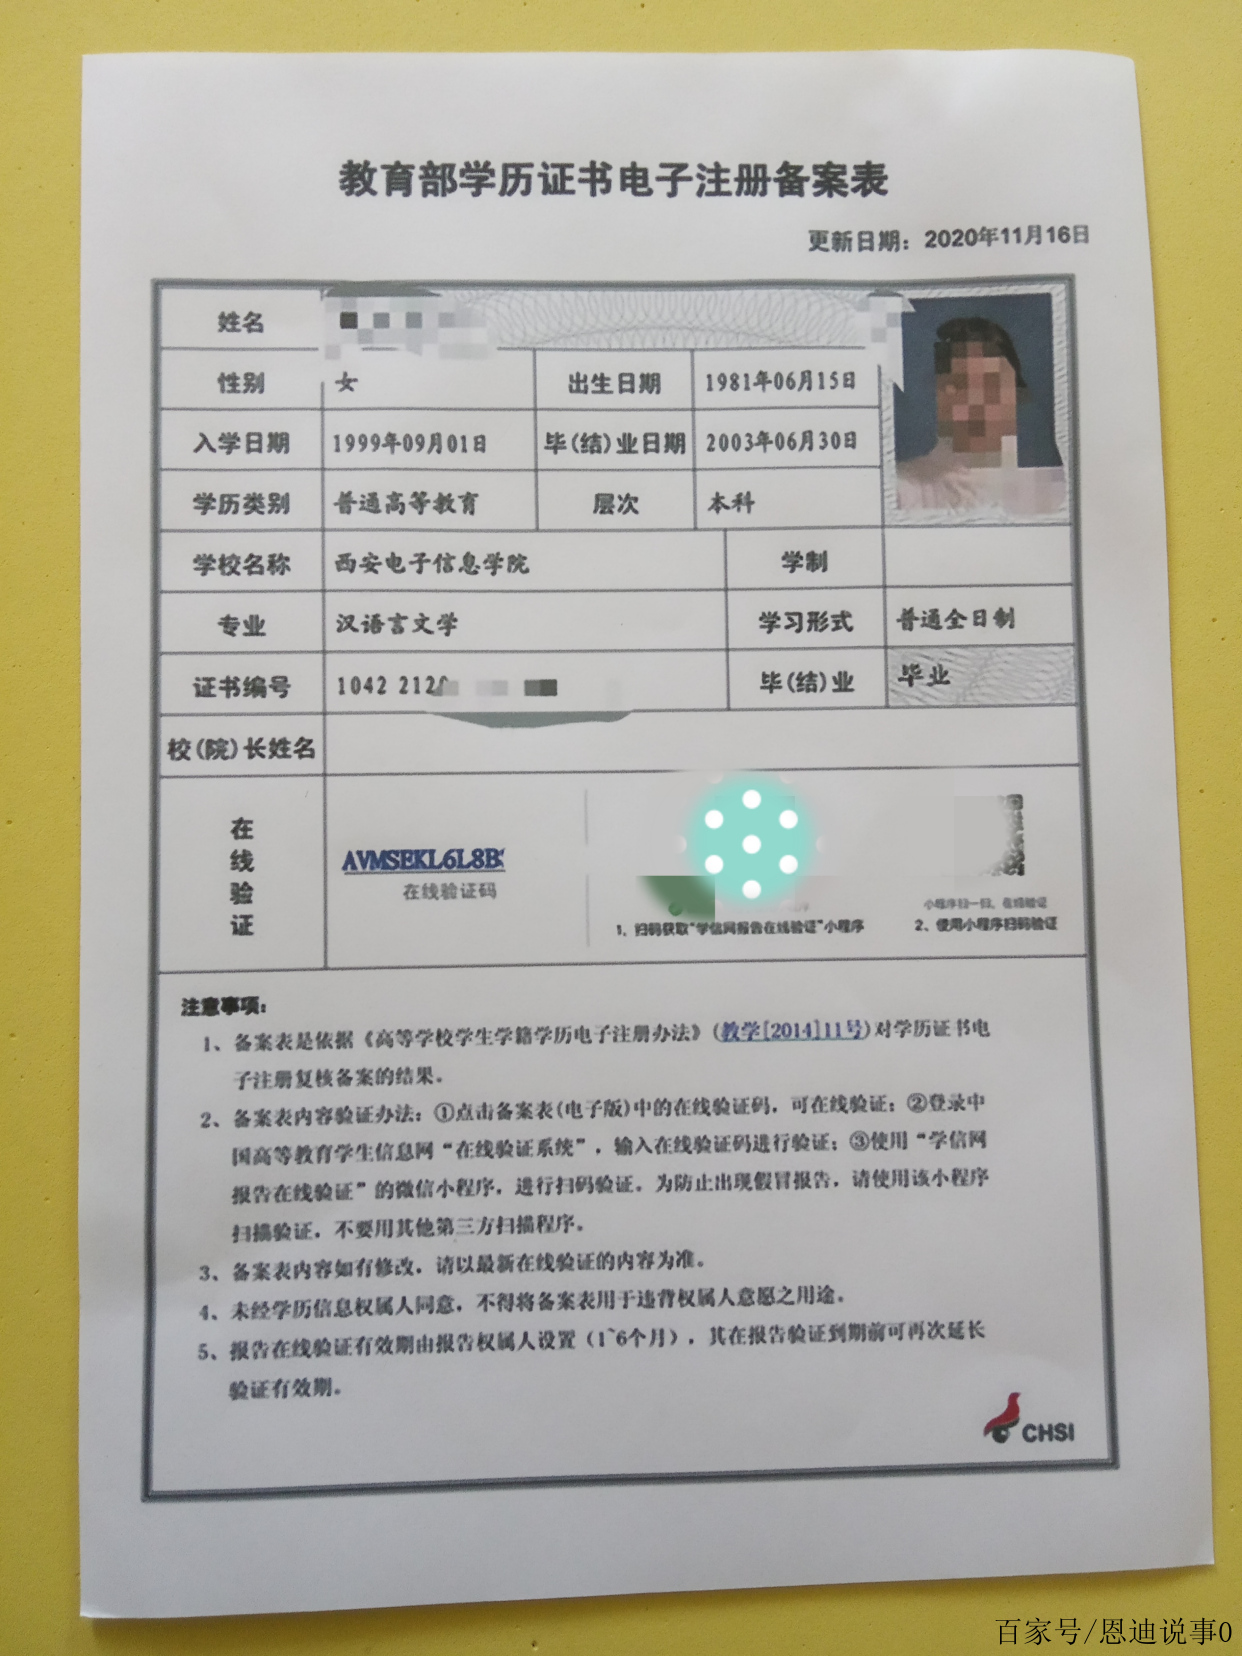 教育部学历证书电子注册备案表
更新日期：2020年11月16日
姓名
性别 女 出生日期 1981年06月15日
入学日期 1999年09月01日 毕(结)业日期 2003年06月30日
学历类别 普通高等教育 层次 本科
学校名称 西安电子信息学院 学制
专业 汉语言文学 学习形式 普通全日制
证书编号 1042 212 毕(结)业 毕业
校(院)长姓名
在线验证
AVMSEKL6L8B
在线验证码
小程序扫一扫，在线验证
1、扫码获取“学信网报告在线验证”小程序 2、使用小程序扫码验证
注意事项：
1、备案表是依据《高等学校学生学籍学历电子注册办法》(教学[2014]11号)对学历证书电
子注册复核备案的结果。
2、备案表内容验证办法：①点击备案表(电子版)中的在线验证码，可在线验证；②登录中
国高等教育学生信息网“在线验证系统”，输入在线验证码进行验证；③使用“学信网
报告在线验证”的微信小程序，进行扫码验证。为防止出现假冒报告，请使用该小程序
扫描验证，不要用其他第三方扫描程序。
3、备案表内容如有修改，请以最新在线验证的内容为准。
4、未经学历信息权属人同意，不得将备案表用于违背权属人意愿之用途。
5、报告在线验证有效期由报告权属人设置（1~6个月），其在报告验证到期前可再次延长
验证有效期。
CHSI
百家号/恩迪说事0